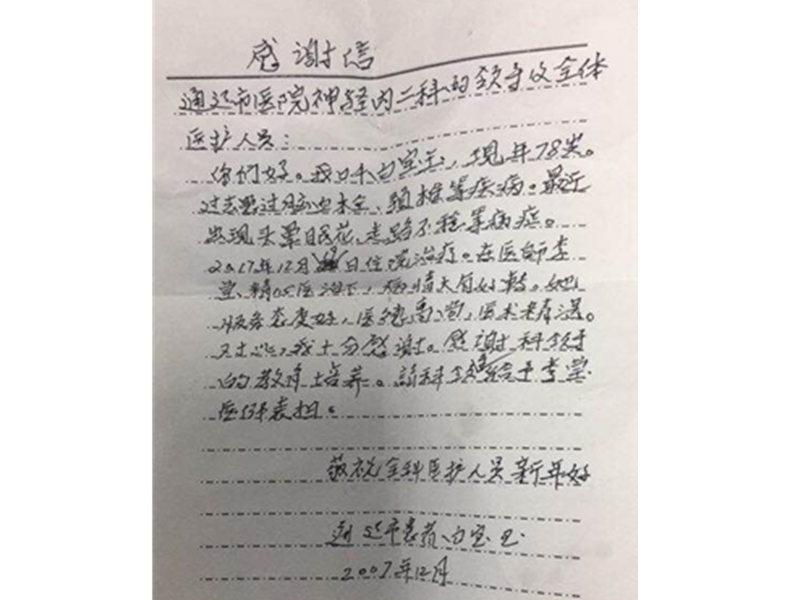 感谢信
通辽市医院神经内二科的领导及全体
医护人员：
你们好。我叫白宝玉，现年78岁。
过去患过脑血栓、颈椎等疾病。最近
出现头晕眼花，走路不稳等病症。
2017年12月19日住院治疗。在医师李
莹精心医治下，病情大有好转。她
服务态度好，医德高尚，医术老练。
对此，我十分感谢。感谢科领导
的教育培养。请科领导给予李莹
医师表扬。
敬祝全科医护人员新年好
通辽市患者白宝玉
2007年12月